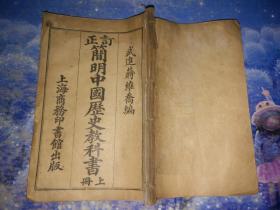 武進蔣維喬編
訂正簡明中國歷史教科書
上冊
上海商務印書館出版